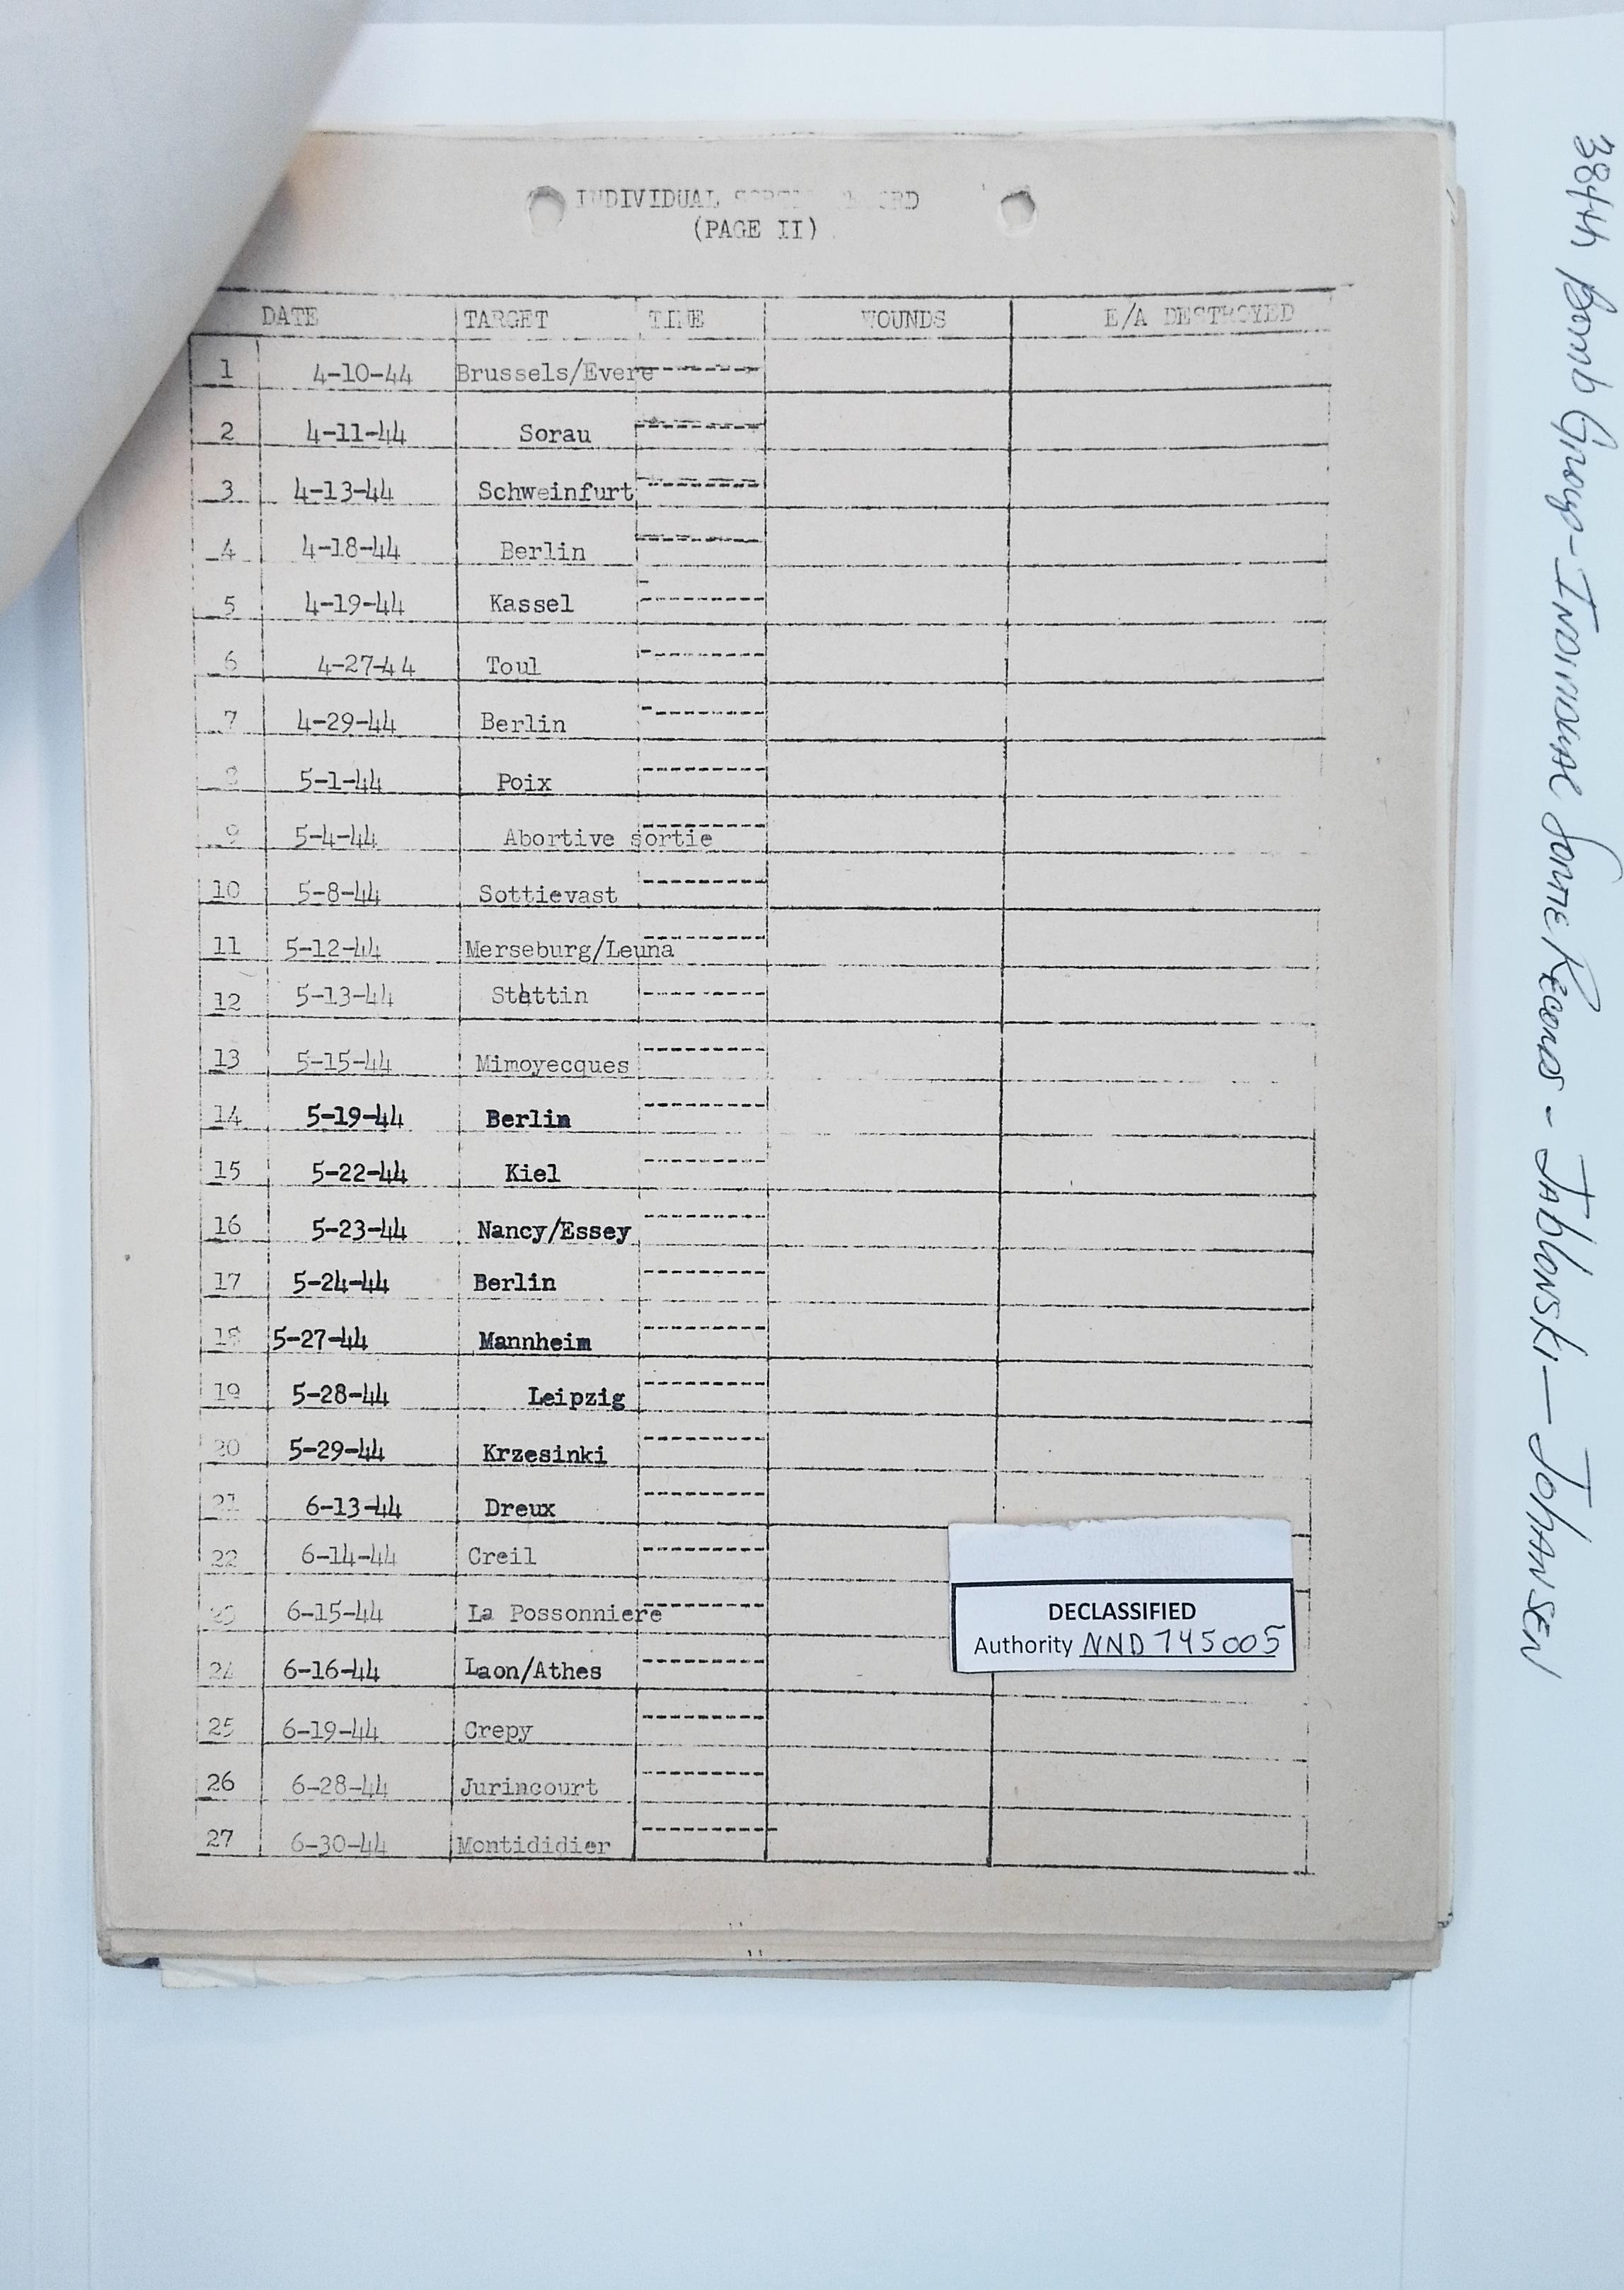 INDIVIDUAL SORTIE RECORD
(PAGE II)
DATE TARGET TIME WOUNDS E/A DESTROYED
1 4-10-44 Brussels/Evere ----------
2 4-11-44 Sorau ----------
3 4-13-44 Schweinfurt ----------
4 4-18-44 Berlin ----------
5 4-19-44 Kassel ----------
6 4-27-44 Toul ----------
7 4-29-44 Berlin ----------
8 5-1-44 Poix ----------
9 5-4-44 Abortive sortie ----------
10 5-8-44 Sottievast ----------
11 5-12-44 Merseburg/Leuna ----------
12 5-13-44 Stettin ----------
13 5-15-44 Mimoyecques ----------
14 5-19-44 Berlin ----------
15 5-22-44 Kiel ----------
16 5-23-44 Nancy/Essey ----------
17 5-24-44 Berlin ----------
18 5-27-44 Mannheim ----------
19 5-28-44 Leipzig ----------
20 5-29-44 Krzesinki ----------
21 6-13-44 Dreux ----------
22 6-14-44 Creil ----------
23 6-15-44 La Possonniere ----------
24 6-16-44 Laon/Athes ----------
25 6-19-44 Crepy ----------
26 6-28-44 Jurincourt ----------
27 6-30-44 Montididier ----------
DECLASSIFIED
Authority NND 745005
384th Bomb Group - Individual Sortie Records - Jablonski — Johansen